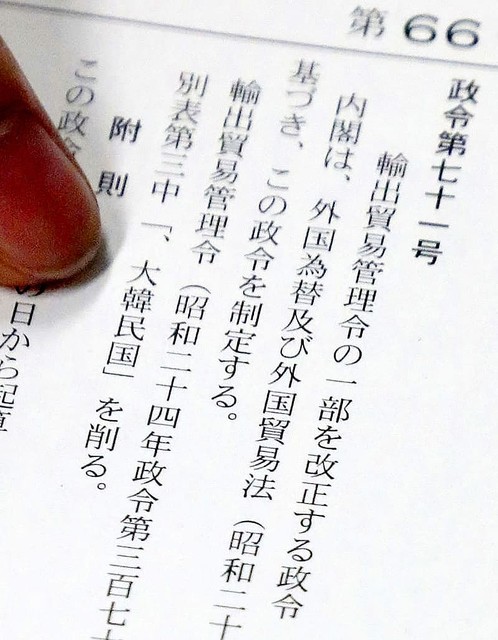 第 66
政令第七十一号
輸出貿易管理令の一部を改正する政令
内閣は、外国為替及び外国貿易法(昭和二十
基づき、この政令を制定する。
輸出貿易管理令(昭和二十四年政令第三百七十
別表第三中「、大韓民国」を削る。
附 則
この政令の日から起算